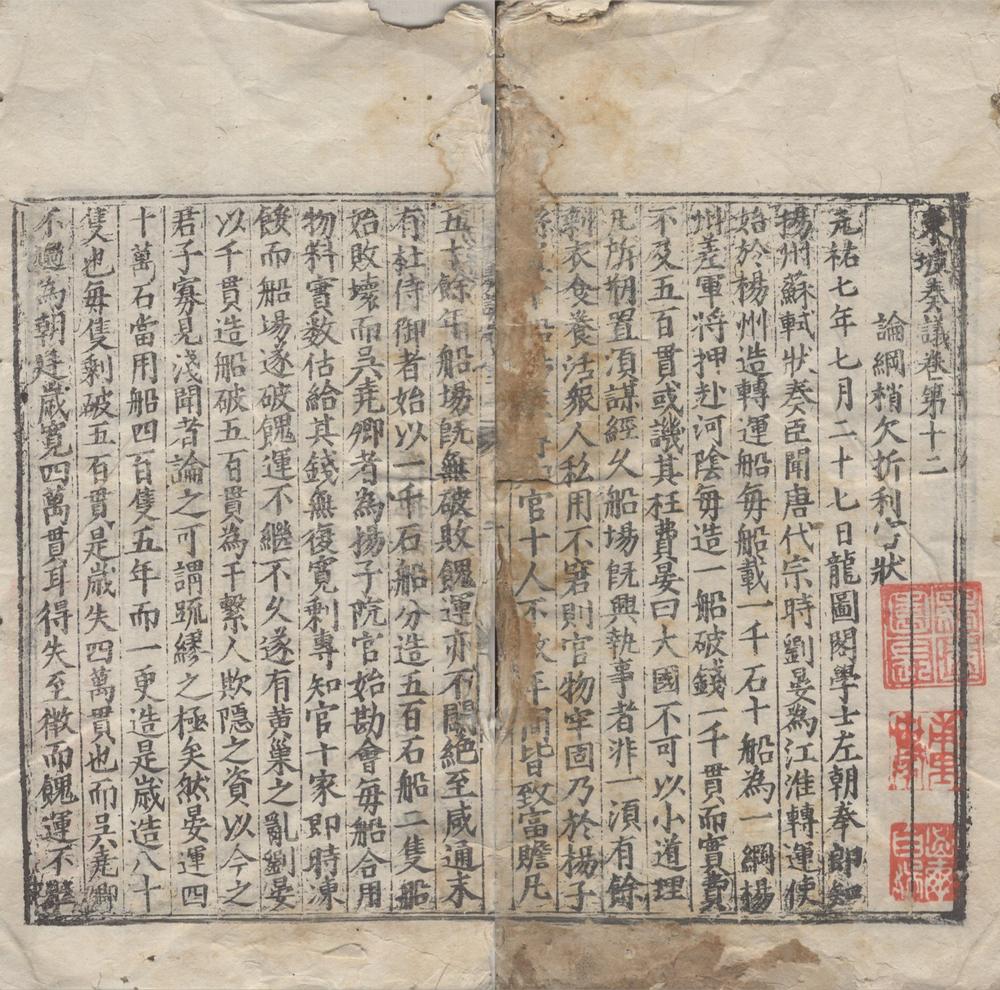 東坡奏議卷第十二
論綱梢欠折利害狀
元祐七年七月二十七日龍圖閣學士左朝奉郎知
揚州蘇軾狀奏臣聞唐代宗時劉晏為江淮轉運使
始於楊州造轉運船每船載一千石十船為一綱楊
州差軍將押赴河陰每造一船破錢一千貫而實費
不及五百貫或譏其枉費晏曰大國不可以小道理
凡所剏置須謀經久船場旣興執事者非一須有餘
剩衣食養活衆人私用不窘則官物牢固乃於揚子
縣船官十人不年間皆致富贍凡
五十餘年船場旣無破敗餽運亦不闕絕至咸通末
有杜侍御者始以一千石船分造五百石船二隻船
始敗壞而吳堯卿者為揚子院官始勘會每船合用
物料實数估給其錢無復寬剩專知官十家即時凍
餒而船場遂破餽運不繼不久遂有黃巢之亂劉晏
以千貫造船破五百貫為干繫人欺隱之資以今之
君子寡見淺聞者論之可謂疏繆之極矣然晏運四
十萬石當用船四百隻五年而一更造是歲造八十
隻也每隻剩破五百貫是歲失四萬貫也而吳堯卿
不過為朝廷歲寬四萬貫耳得失至微而餽運不繼